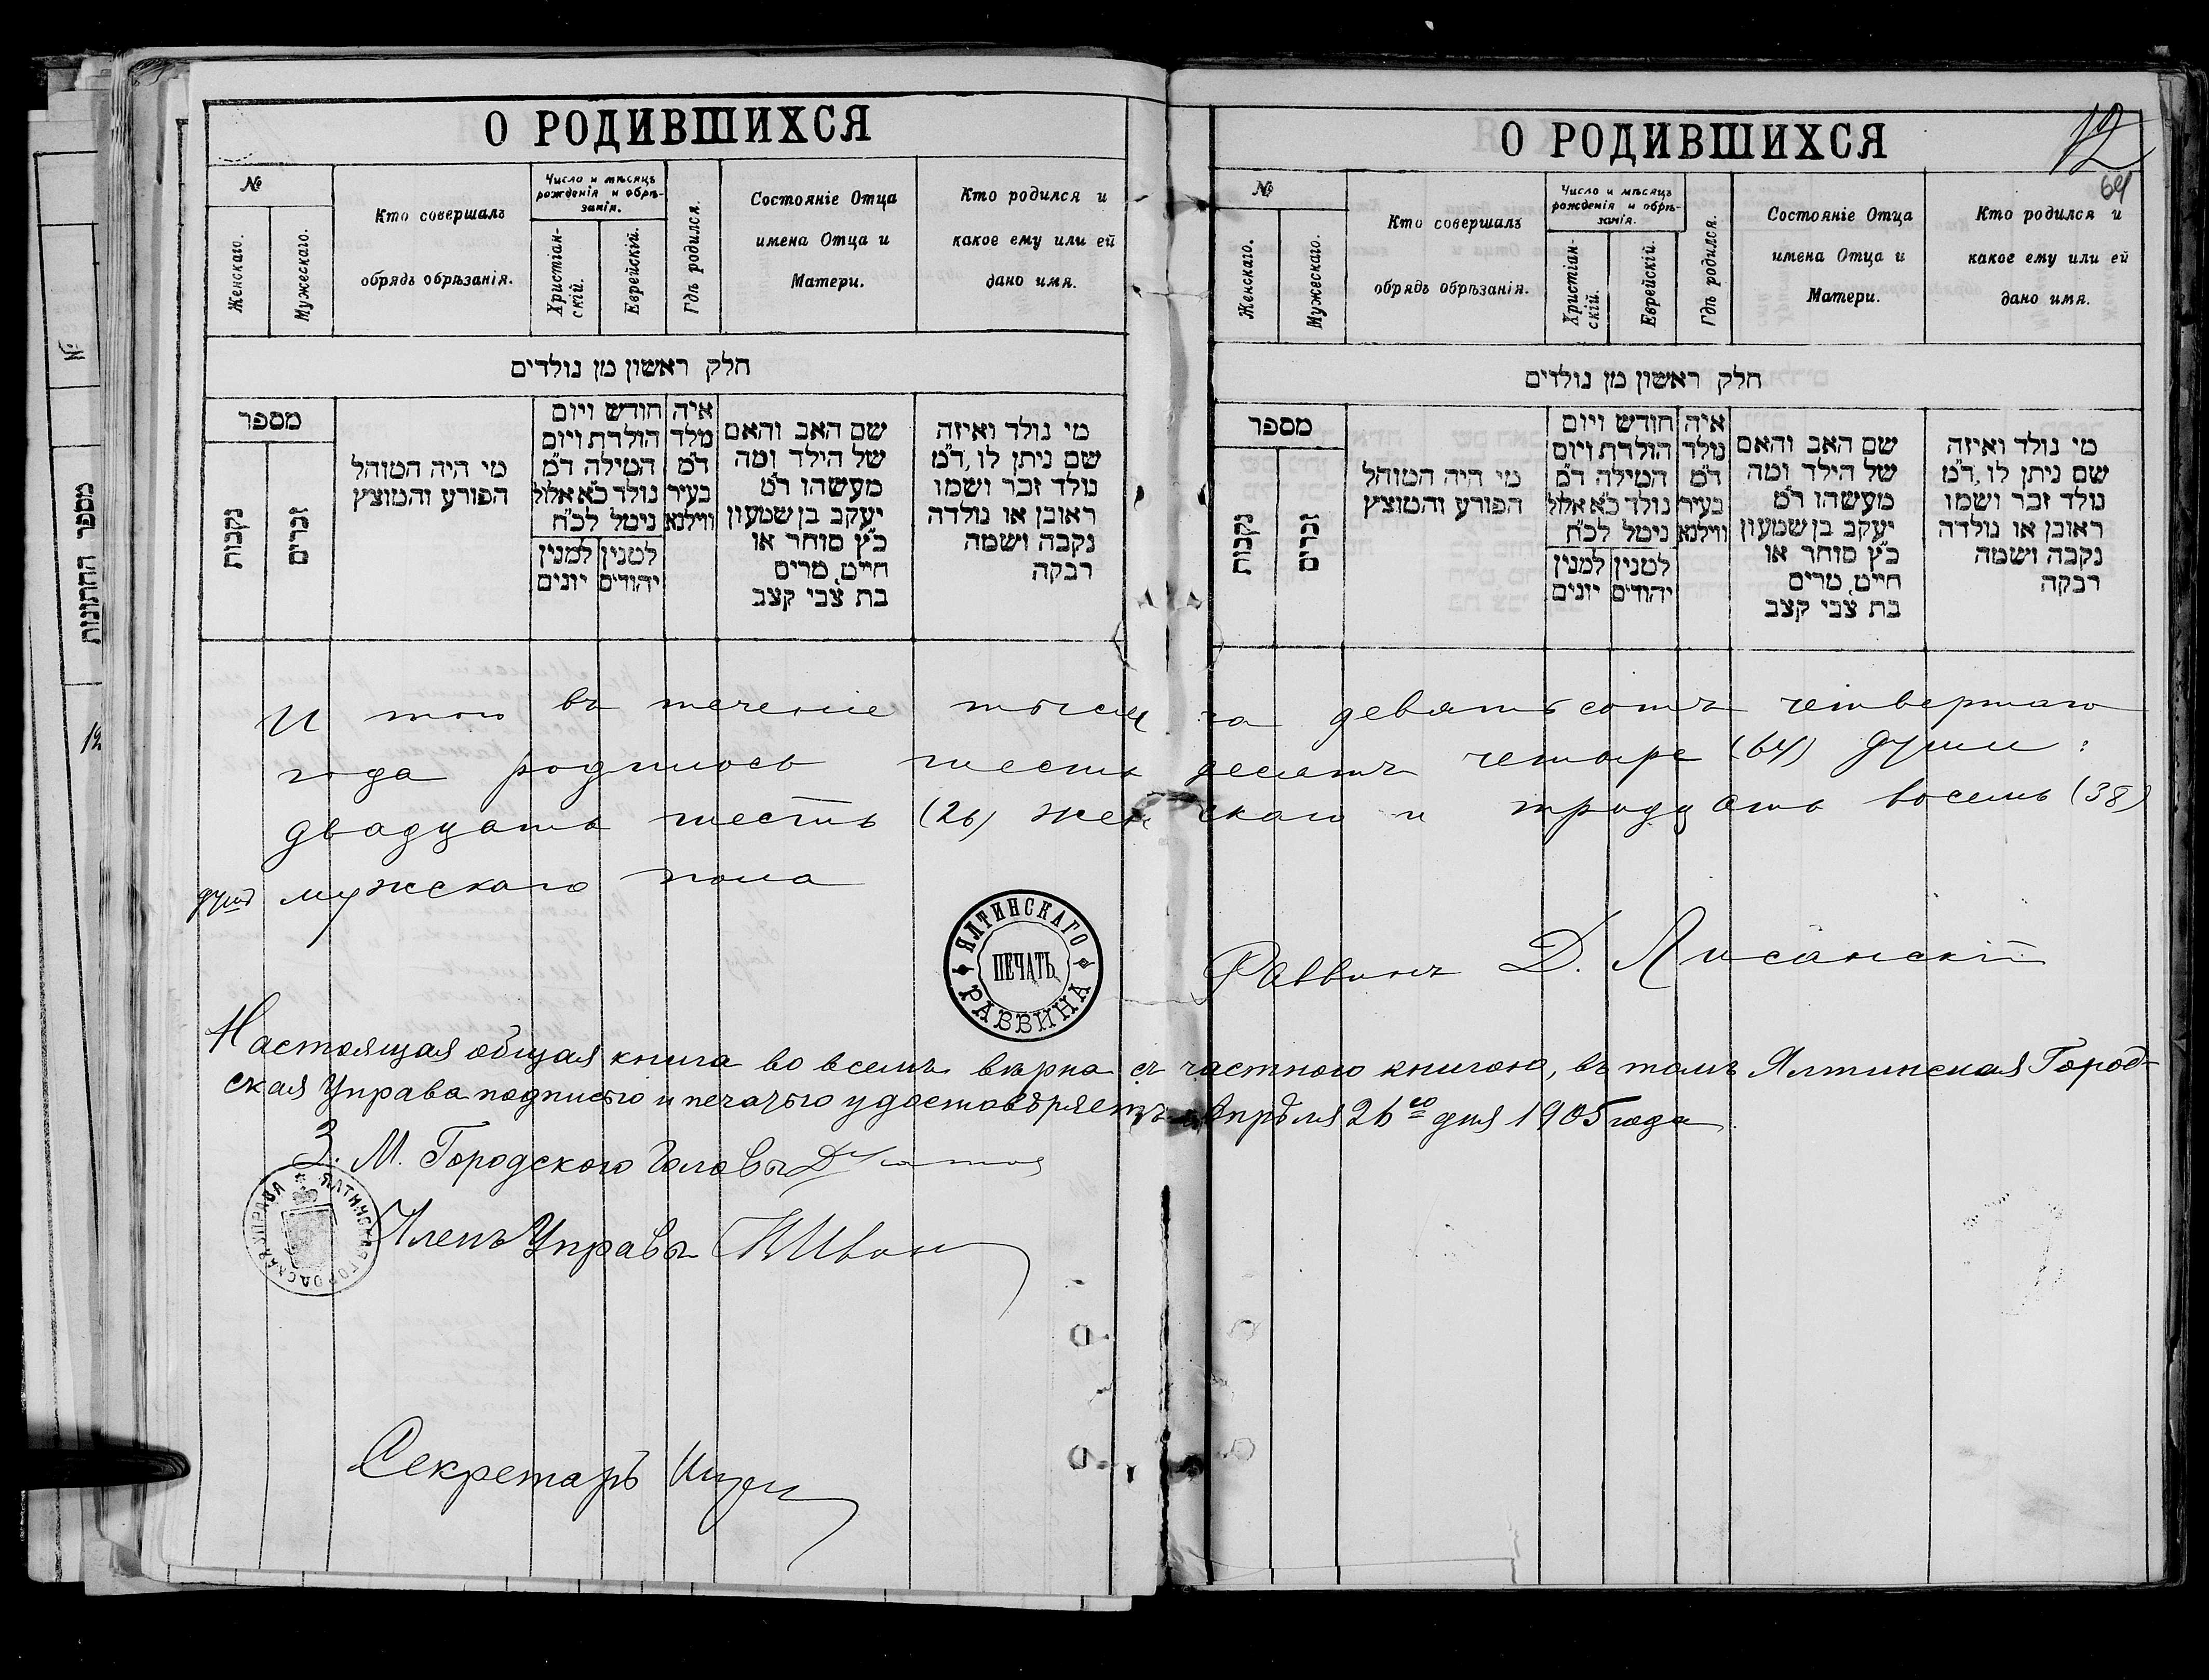 О РОДИВШИХСЯ
№
Женскаго.
Мужескаго.
Кто совершалъ
обрядъ обрѣзанія.
Число и мѣсяцъ
рожденія и обрѣ-
занія.
Христіан-
скій.
Еврейскій.
Гдѣ родился.
Состояніе Отца
имена Отца и
Матери.
Кто родился и
какое ему или ей
дано имя.
חלק ראשון מן נולדים
מספר
נקבות
זכרים
מי היה המוהל
הפורע והמוצץ
חודש ויום
הולדת ויום
המילה ד״מ
נולד כ״א אלול
ניטל לכ״ח
למנין יונים
למנין יהודים
איה
נולד
ד״מ
בעיר
ווילנא
שם האב והאם
של הילד ומה
מעשהו ד״מ
יעקב בן שמעון
כ״ץ סוחר או
חייט, מרים
בת צבי קצב
מי נולד ואיזה
שם ניתן לו, ד״מ
נולד זכר ושמו
ראובן או נולדה
נקבה ושמה
רבקה
О РОДИВШИХСЯ
12
64
№
Женскаго.
Мужескаго.
Кто совершалъ
обрядъ обрѣзанія.
Число и мѣсяцъ
рожденія и обрѣ-
занія.
Христіан-
скій.
Еврейскій.
Гдѣ родился.
Состояніе Отца
имена Отца и
Матери.
Кто родился и
какое ему или ей
дано имя.
חלק ראשון מן נולדים
מספר
נקבות
זכרים
מי היה המוהל
הפורע והמוצץ
חודש ויום
הולדת ויום
המילה ד״מ
נולד כ״א אלול
ניטל לכ״ח
למנין יונים
למנין יהודים
איה
נולד
ד״מ
בעיר
ווילנא
שם האב והאם
של הילד ומה
מעשהו ד״מ
יעקב בן שמעון
כ״ץ סוחר או
חייט, מרים
בת צבי קצב
מי נולד ואיזה
שם ניתן לו, ד״מ
נולד זכר ושמו
ראובן או נולדה
נקבה ושמה
רבקה
№
מספר החתונות
12
И того въ теченіе тысяча девятьсотъ четвертаго
года родилось шестьдесятъ четыре (64) души:
двадцать шесть (26) женскаго и тридцать восемь (38)
душъ мужскаго пола
ЯЛТИНСКАГО РАВВИНА
ПЕЧАТЬ
Раввинъ Д. Лисанскій
Настоящая общая книга во всемъ вѣрна съ частною книгою, въ томъ Ялтинская Город-
ская Управа подписью и печатью удостовѣряетъ Апрѣля 26го дня 1905 года
З. М. Городского Головы
ЯЛТИНСКАЯ ГОРОДСКАЯ УПРАВА
Членъ Управы
Секретарь